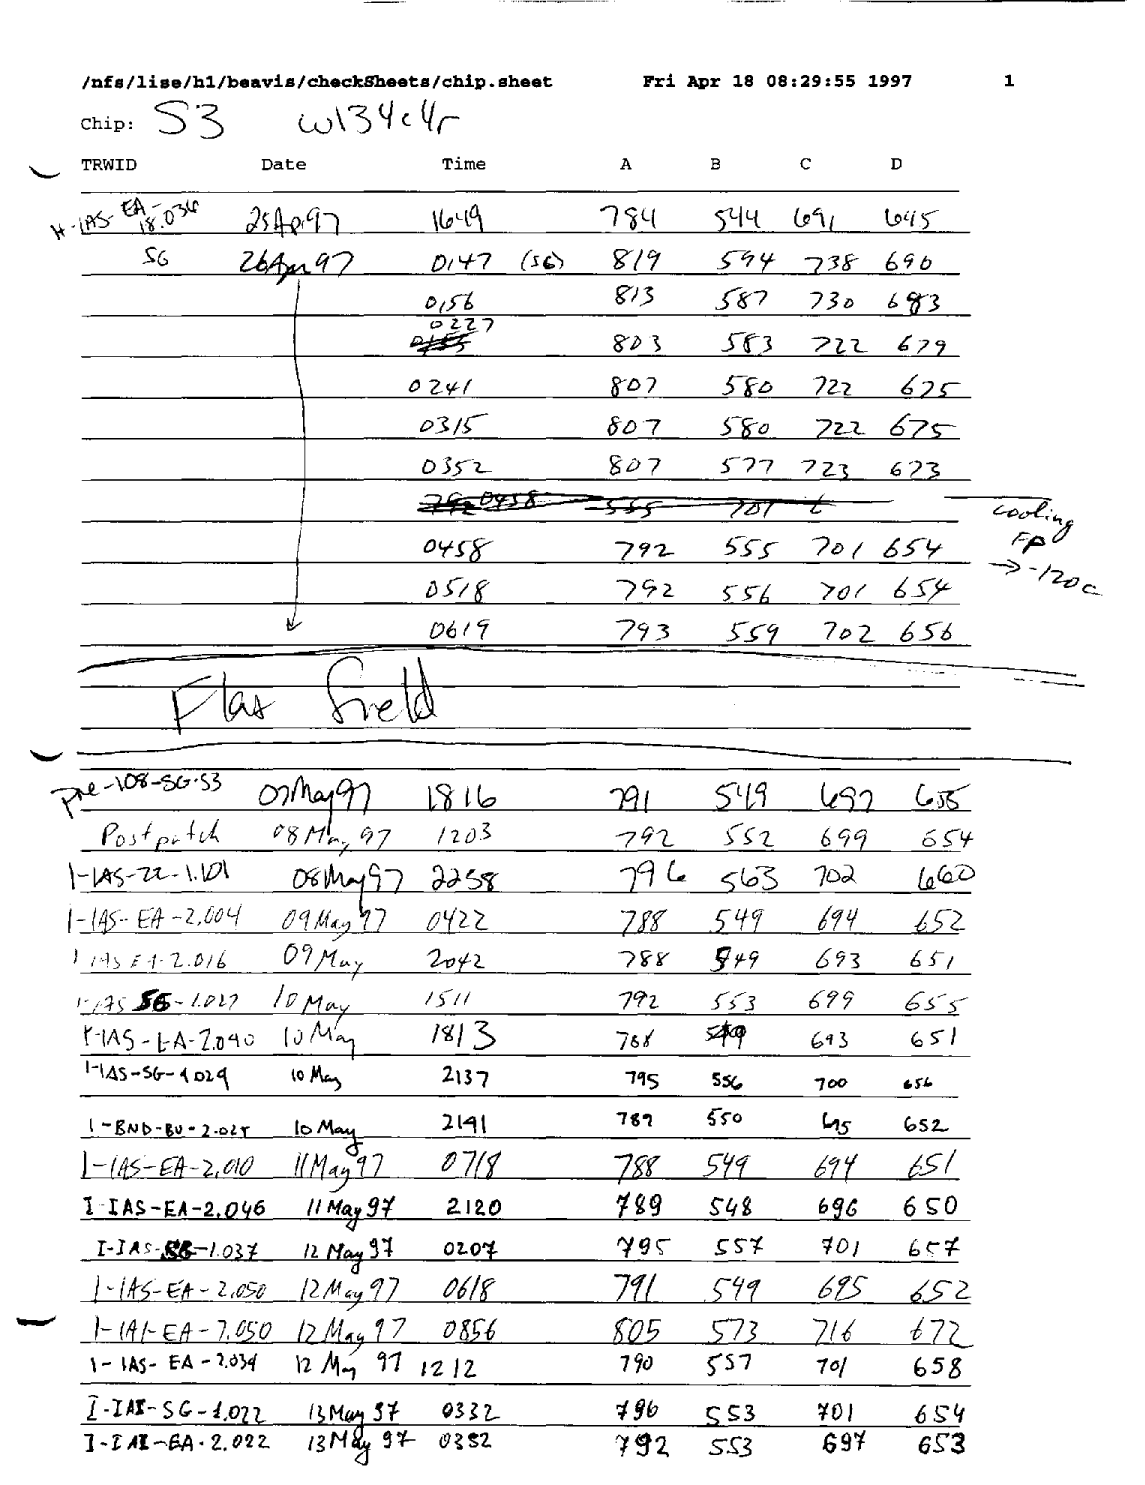 /nfs/lise/h1/beavis/checkSheets/chip.sheet Fri Apr 18 08:29:55 1997 1
Chip: S3 w134c4r
TRWID Date Time A B C D
H-IAS-EA-18.034 25Apr97 1649 784 544 691 645
SG 26Apr97 0147 (SG) 819 594 738 690
0156 813 587 730 683
0227 803 583 722 679
0241 807 580 722 675
0315 807 580 722 675
0352 807 577 723 673
0458 555 701
cooling
0458 792 555 701 654 FP
→ -120c
0518 792 556 701 654
0619 793 559 702 656
Flat field
Pre-108-SG-S3 07May97 1816 791 549 697 655
Postpatch 08May97 1203 792 552 699 654
I-IAS-ZZ-1.101 08May97 2258 796 563 702 660
I-IAS-EA-2.004 09May97 0422 788 549 694 652
I-IAS-EA-2.016 09May 2042 788 549 693 651
I-IAS SG-1.027 10May 1511 792 553 699 655
I-IAS-EA-2.040 10May 1813 788 549 693 651
I-IAS-SG-1.029 10 May 2137 795 556 700 656
I-BND-BU-2.025 10 May 2141 789 550 695 652
I-IAS-EA-2.010 11May97 0718 788 549 694 651
I-IAS-EA-2.046 11May97 2120 789 548 696 650
I-IAS-SG-1.037 12May97 0207 795 557 701 657
I-IAS-EA-2.050 12May97 0618 791 549 695 652
I-IAI-EA-7.050 12May97 0856 805 573 716 672
I-IAS-EA-2.034 12 May 97 1212 790 557 701 658
I-IAI-SG-1.022 13May97 0332 796 553 701 654
I-IAI-EA-2.022 13May97 0352 792 553 697 653